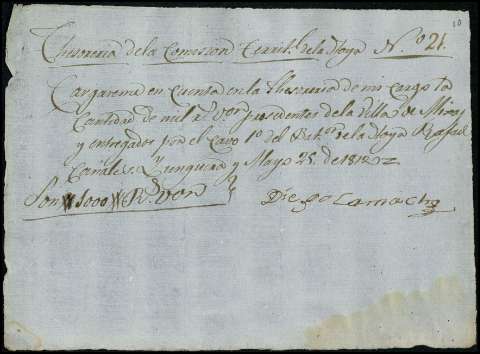 10
Thesoreria de la Comision Territl. de la Hoya N.º 21.
Cargareme en Cuenta en la thesoreria de mi cargo la
Cantidad de mil rs. von. procedentes de la Villa de
y entregados por el Cavo 1º del de la Hoya Rafael
Canales. Junquera y Mayo 25. de 1812
Son # 1000 # Rs. von
Diego Camacho